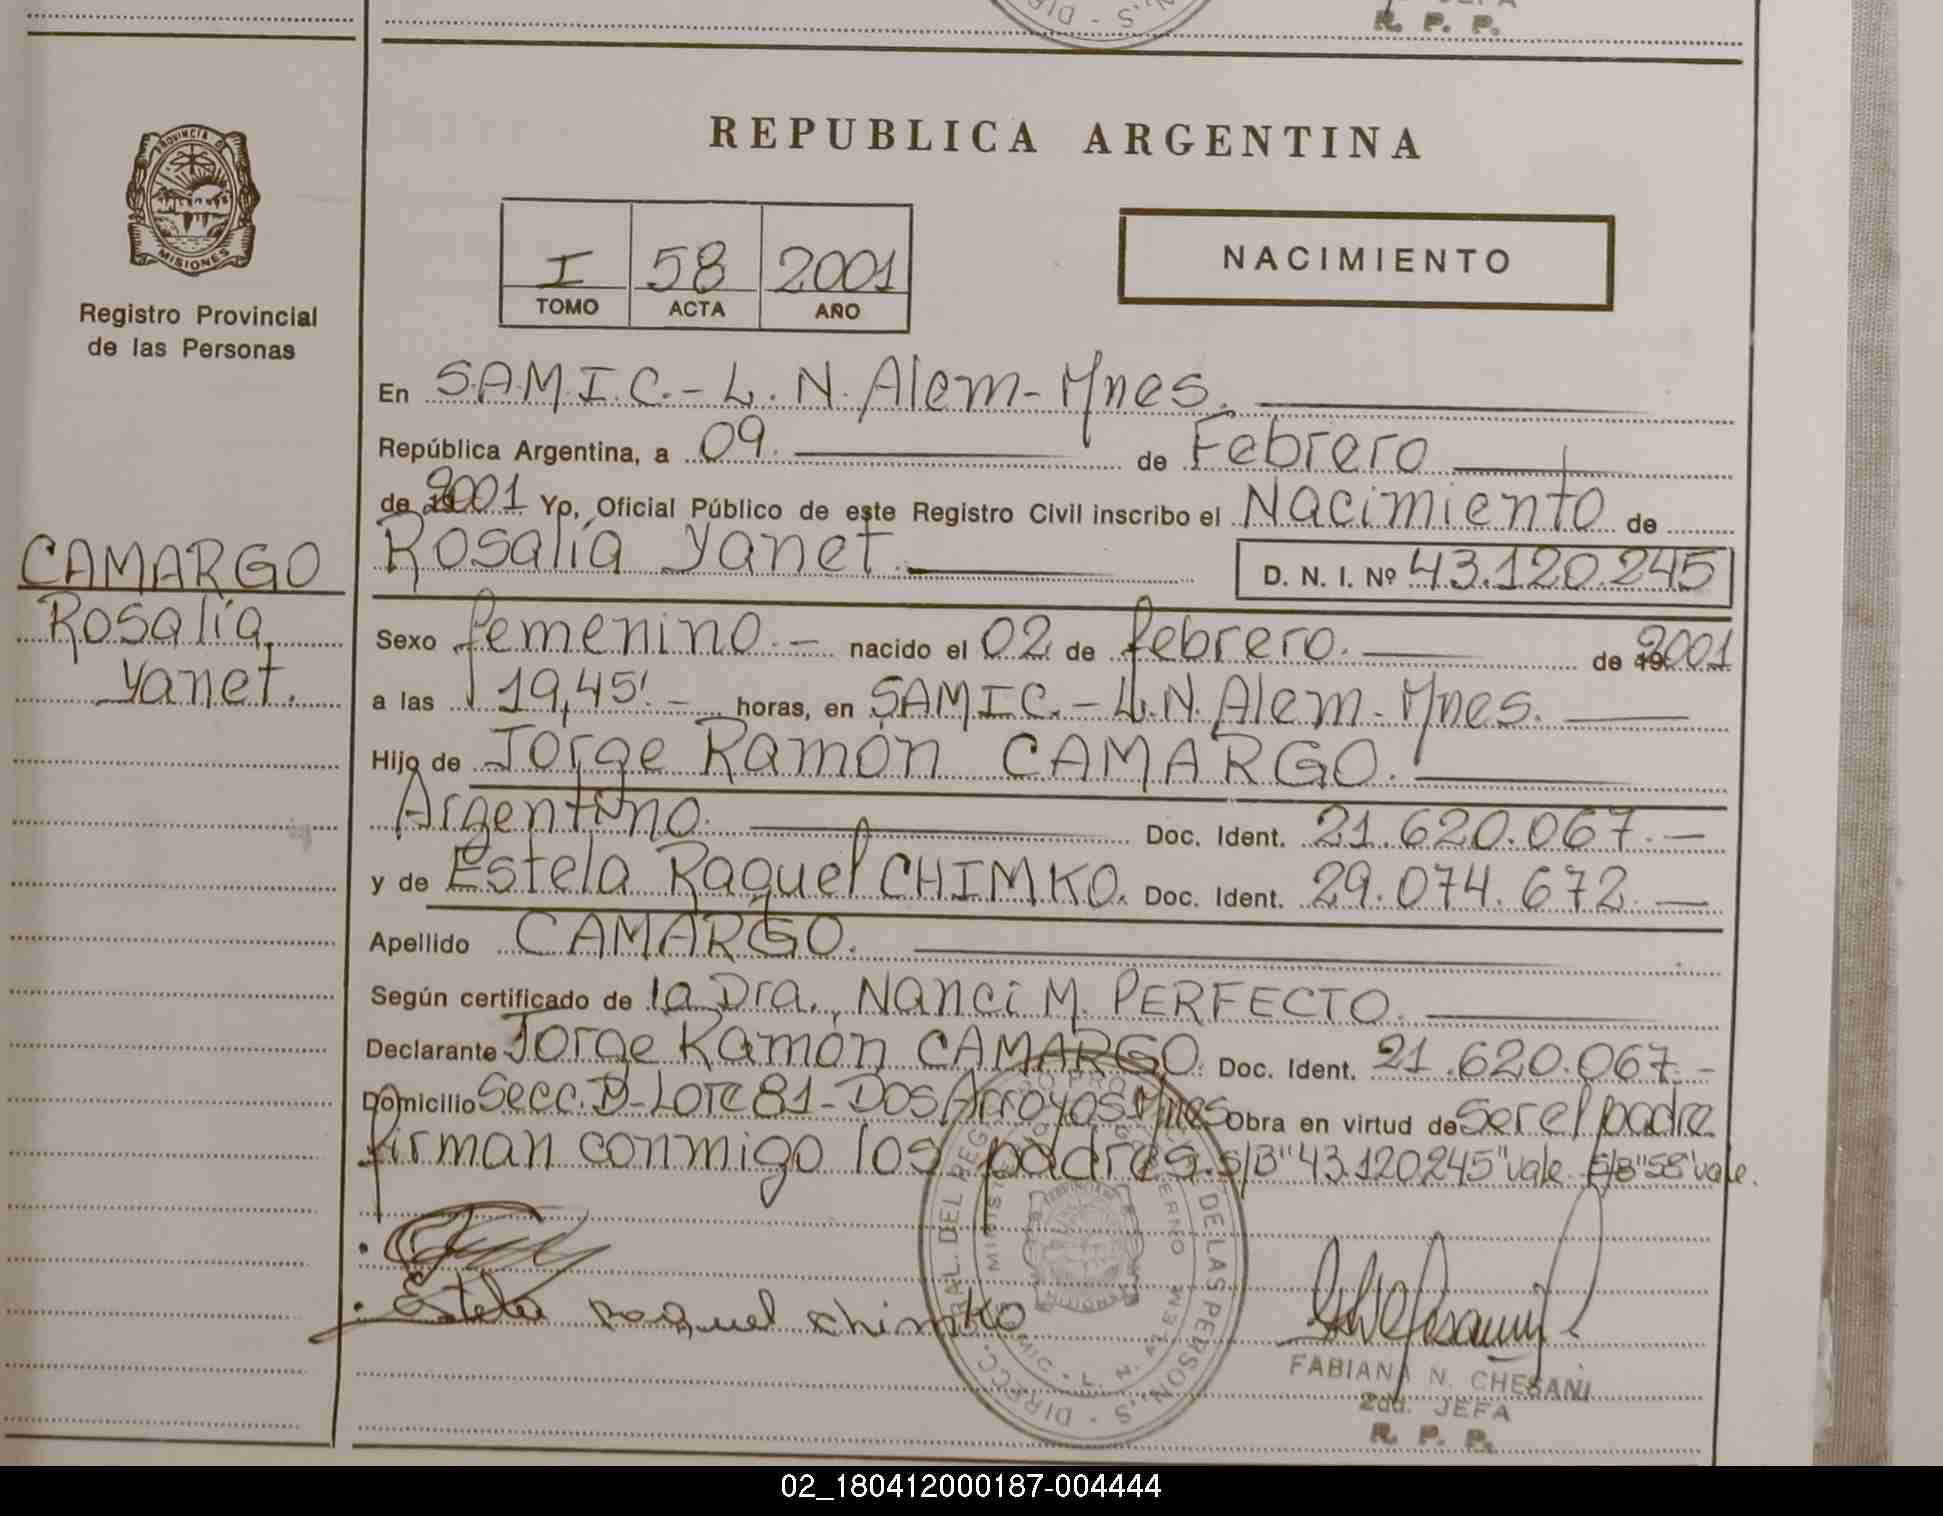 R. P. P.
REPUBLICA ARGENTINA
PROVINCIA DE
MISIONES
Registro Provincial
de las Personas
I 58 2001
TOMO ACTA AÑO
NACIMIENTO
En S.A.M.I.C.- L.N. Alem - Mnes.
República Argentina, a 09. de Febrero
de 2001 Yo, Oficial Público de este Registro Civil inscribo el Nacimiento de
Rosalía Yanet. D. N. I. Nº 43.120.245
CAMARGO
Rosalía
Yanet.
Sexo femenino.- nacido el 02 de febrero. de 2001
a las 19,45'.- horas, en SAMIC.- L.N. Alem - Mnes.
Hijo de Jorge Ramón CAMARGO.
Argentino. Doc. Ident. 21.620.067.-
y de Estela Raquel CHIMKO. Doc. Ident. 29.074.672.-
Apellido CAMARGO.
Según certificado de la Dra. Nanci M. PERFECTO.
Declarante Jorge Ramón CAMARGO. Doc. Ident. 21.620.067.-
Domicilio Secc. D - Lote 81 - Dos Arroyos Mnes Obra en virtud de ser el padre
firman conmigo los padres. S/B "43.120245" vale S/B "58" vale.
Estela Raquel Chimko
FABIANA N. CHESANI
2da. JEFA
R. P. P.
02_180412000187-004444